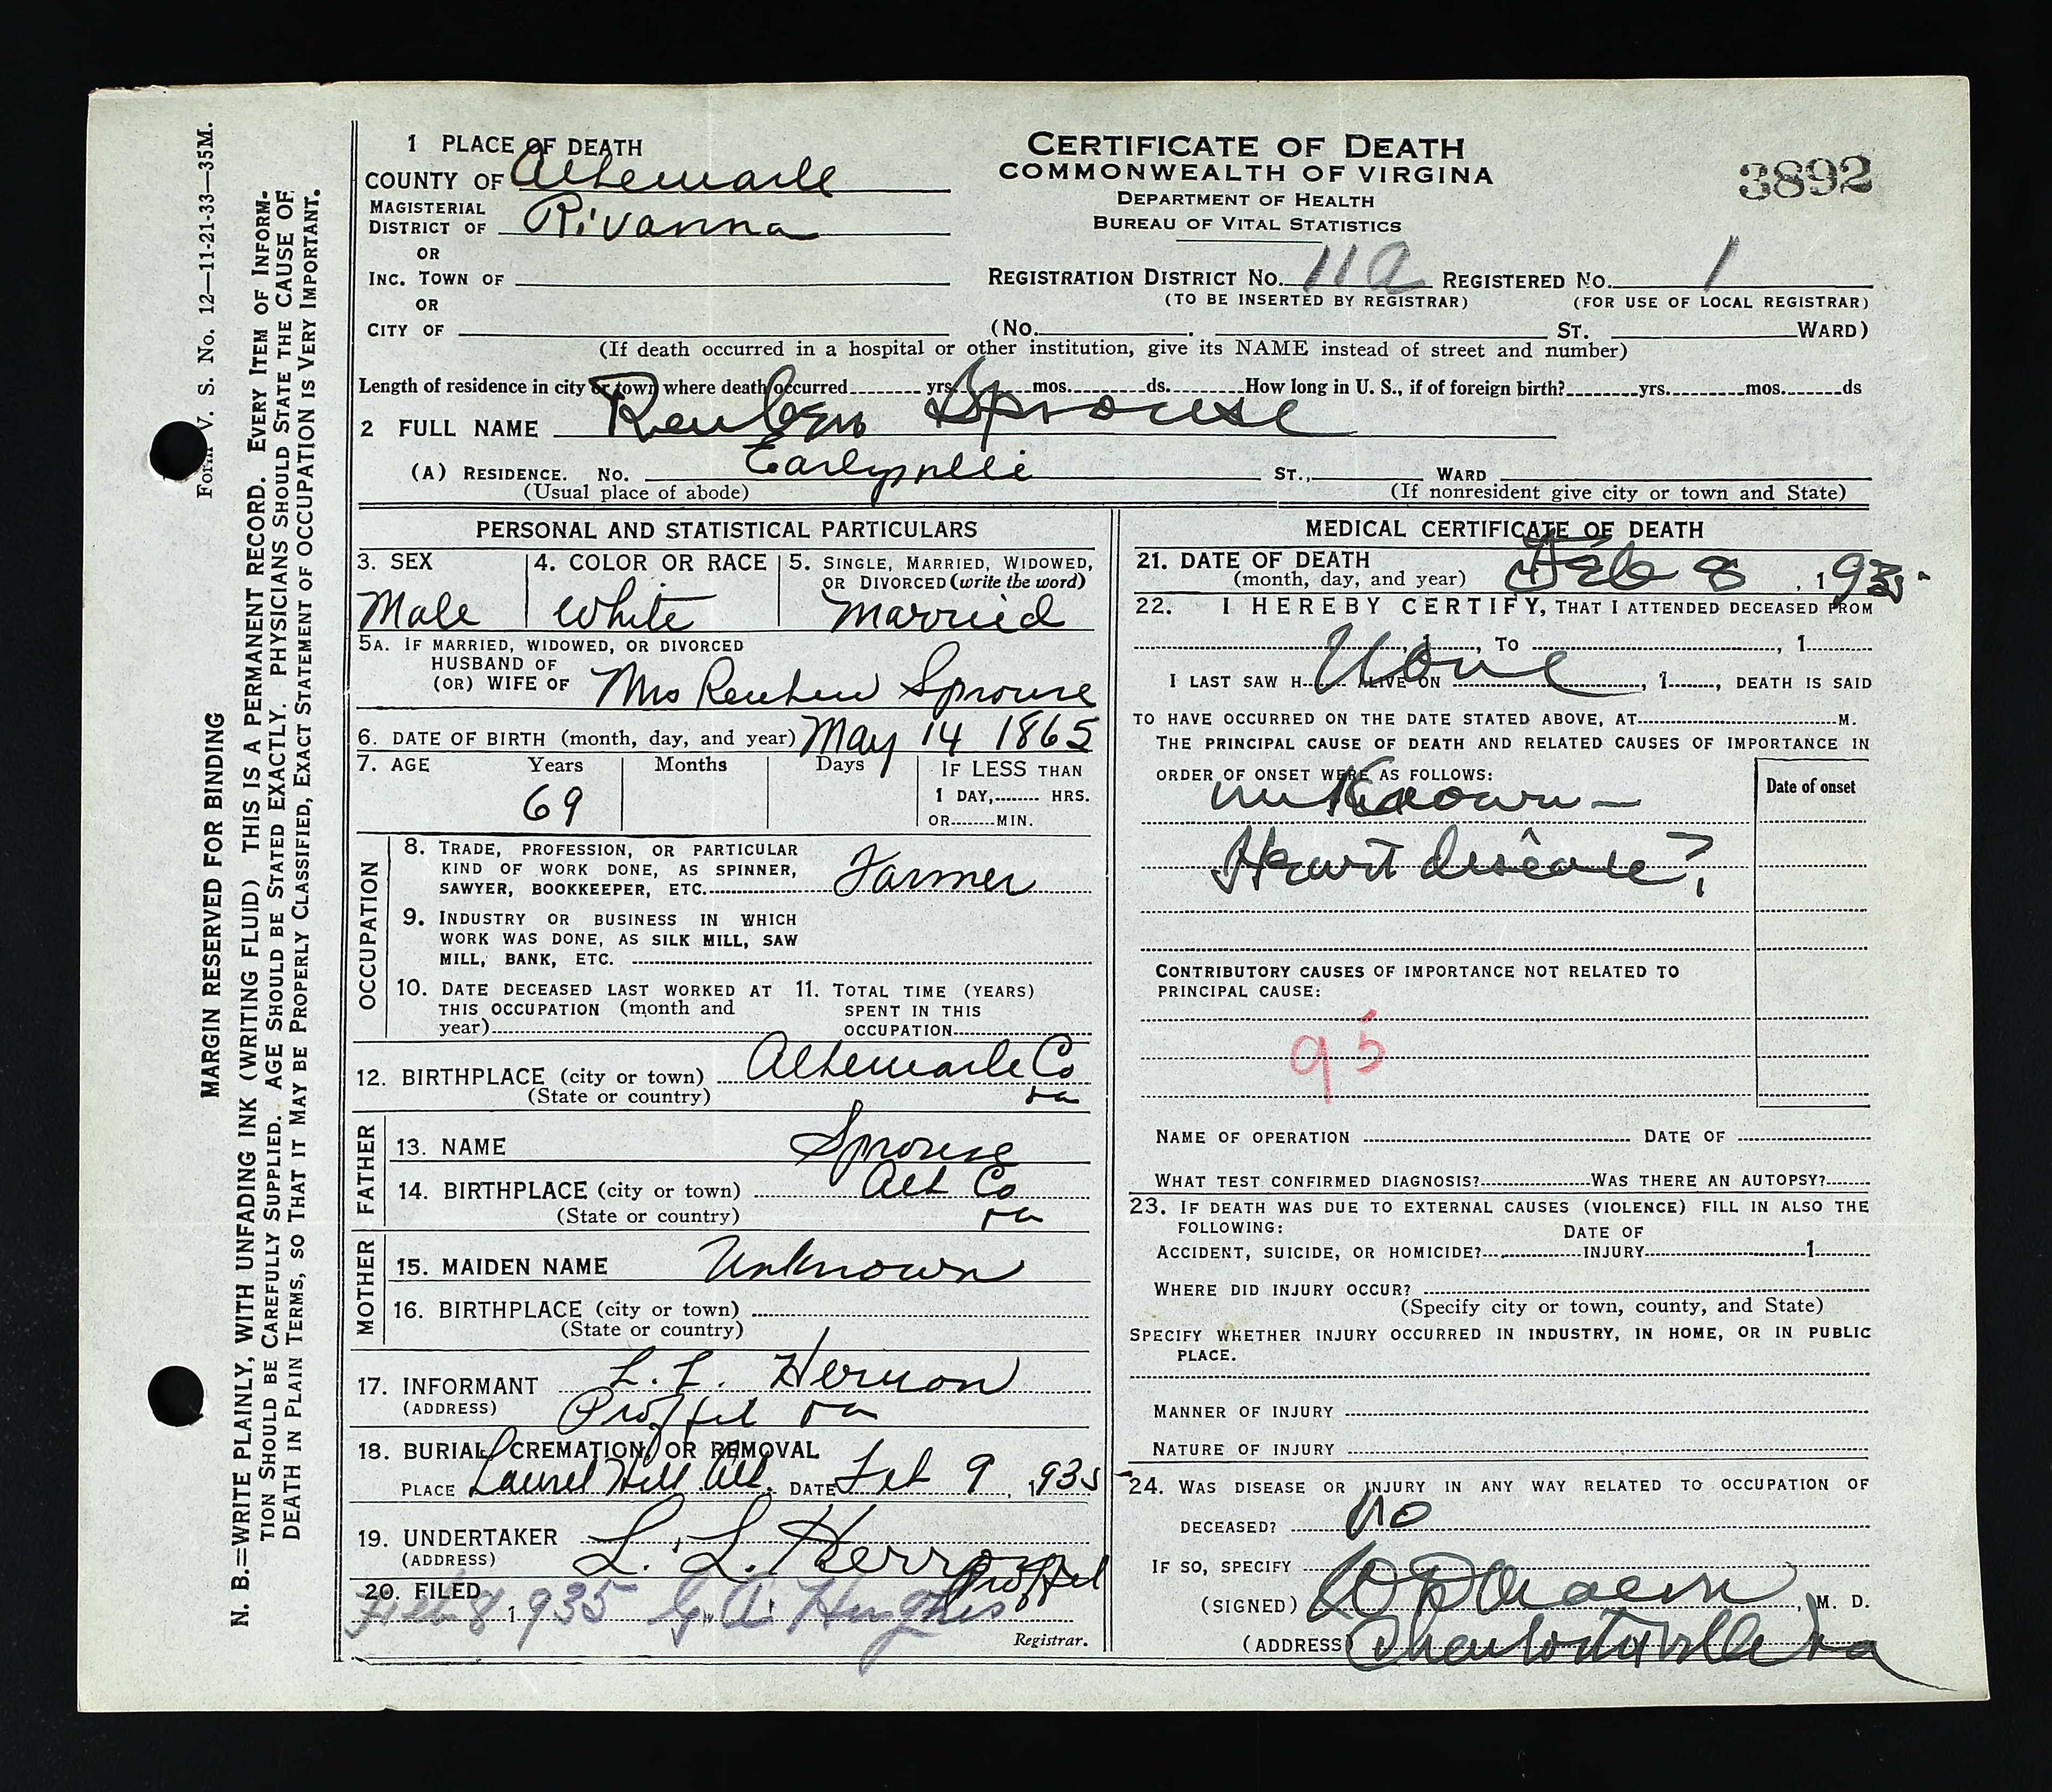 Form V. S. No. 12—11-21-33—35M.
MARGIN RESERVED FOR BINDING
N. B.=WRITE PLAINLY, WITH UNFADING INK (WRITING FLUID) THIS IS A PERMANENT RECORD. EVERY ITEM OF INFORM-
TION SHOULD BE CAREFULLY SUPPLIED. AGE SHOULD BE STATED EXACTLY. PHYSICIANS SHOULD STATE THE CAUSE OF
DEATH IN PLAIN TERMS, SO THAT IT MAY BE PROPERLY CLASSIFIED, EXACT STATEMENT OF OCCUPATION IS VERY IMPORTANT.
1 PLACE OF DEATH
COUNTY OF Albemarle
MAGISTERIAL
DISTRICT OF Rivanna
OR
INC. TOWN OF
OR
CITY OF
CERTIFICATE OF DEATH
COMMONWEALTH OF VIRGINA
DEPARTMENT OF HEALTH
BUREAU OF VITAL STATISTICS
3892
REGISTRATION DISTRICT NO. 11a REGISTERED NO. 1
(TO BE INSERTED BY REGISTRAR) (FOR USE OF LOCAL REGISTRAR)
(No. ST. WARD)
(If death occurred in a hospital or other institution, give its NAME instead of street and number)
Length of residence in city or town where death occurred yrs. mos. ds. How long in U. S., if of foreign birth? yrs. mos. ds
2 FULL NAME Reuben Sprouse
(A) RESIDENCE. No. Earlysville ST., WARD
(Usual place of abode) (If nonresident give city or town and State)
PERSONAL AND STATISTICAL PARTICULARS
3. SEX 4. COLOR OR RACE 5. SINGLE, MARRIED, WIDOWED,
OR DIVORCED (write the word)
Male White Married
5A. IF MARRIED, WIDOWED, OR DIVORCED
HUSBAND OF
(OR) WIFE OF Mrs Reuben Sprouse
6. DATE OF BIRTH (month, day, and year) May 14 1865
7. AGE Years Months Days IF LESS THAN
69 1 DAY, HRS.
OR MIN.
OCCUPATION
8. TRADE, PROFESSION, OR PARTICULAR
KIND OF WORK DONE, AS SPINNER,
SAWYER, BOOKKEEPER, ETC. Farmer
9. INDUSTRY OR BUSINESS IN WHICH
WORK WAS DONE, AS SILK MILL, SAW
MILL, BANK, ETC.
10. DATE DECEASED LAST WORKED AT 11. TOTAL TIME (YEARS)
THIS OCCUPATION (month and SPENT IN THIS
year) OCCUPATION
12. BIRTHPLACE (city or town) Albemarle Co
(State or country) va
FATHER
13. NAME Sprouse
14. BIRTHPLACE (city or town) Alb Co
(State or country) va
MOTHER
15. MAIDEN NAME Unknown
16. BIRTHPLACE (city or town)
(State or country)
17. INFORMANT L. L. Herron
(ADDRESS) Proffit va
18. BURIAL, CREMATION, OR REMOVAL
PLACE Laurel Hill Alb. DATE Feb 9, 1935
19. UNDERTAKER L. L. Herron
(ADDRESS) Proffit
20. FILED Feb 8 1935 G. A. Hughes
Registrar.
MEDICAL CERTIFICATE OF DEATH
21. DATE OF DEATH
(month, day, and year) Feb 8, 1935
22. I HEREBY CERTIFY, THAT I ATTENDED DECEASED FROM
, 1, TO , 1
None
I LAST SAW H ALIVE ON , 1, DEATH IS SAID
TO HAVE OCCURRED ON THE DATE STATED ABOVE, AT M.
THE PRINCIPAL CAUSE OF DEATH AND RELATED CAUSES OF IMPORTANCE IN
ORDER OF ONSET WERE AS FOLLOWS: Date of onset
unknown —
Heart disease?
CONTRIBUTORY CAUSES OF IMPORTANCE NOT RELATED TO
PRINCIPAL CAUSE:
95
NAME OF OPERATION DATE OF
WHAT TEST CONFIRMED DIAGNOSIS? WAS THERE AN AUTOPSY?
23. IF DEATH WAS DUE TO EXTERNAL CAUSES (VIOLENCE) FILL IN ALSO THE
FOLLOWING: DATE OF
ACCIDENT, SUICIDE, OR HOMICIDE? INJURY 1
WHERE DID INJURY OCCUR?
(Specify city or town, county, and State)
SPECIFY WHETHER INJURY OCCURRED IN INDUSTRY, IN HOME, OR IN PUBLIC
PLACE.
MANNER OF INJURY
NATURE OF INJURY
24. WAS DISEASE OR INJURY IN ANY WAY RELATED TO OCCUPATION OF
DECEASED? no
IF SO, SPECIFY
(SIGNED) , M. D.
(ADDRESS) Charlottesville Va